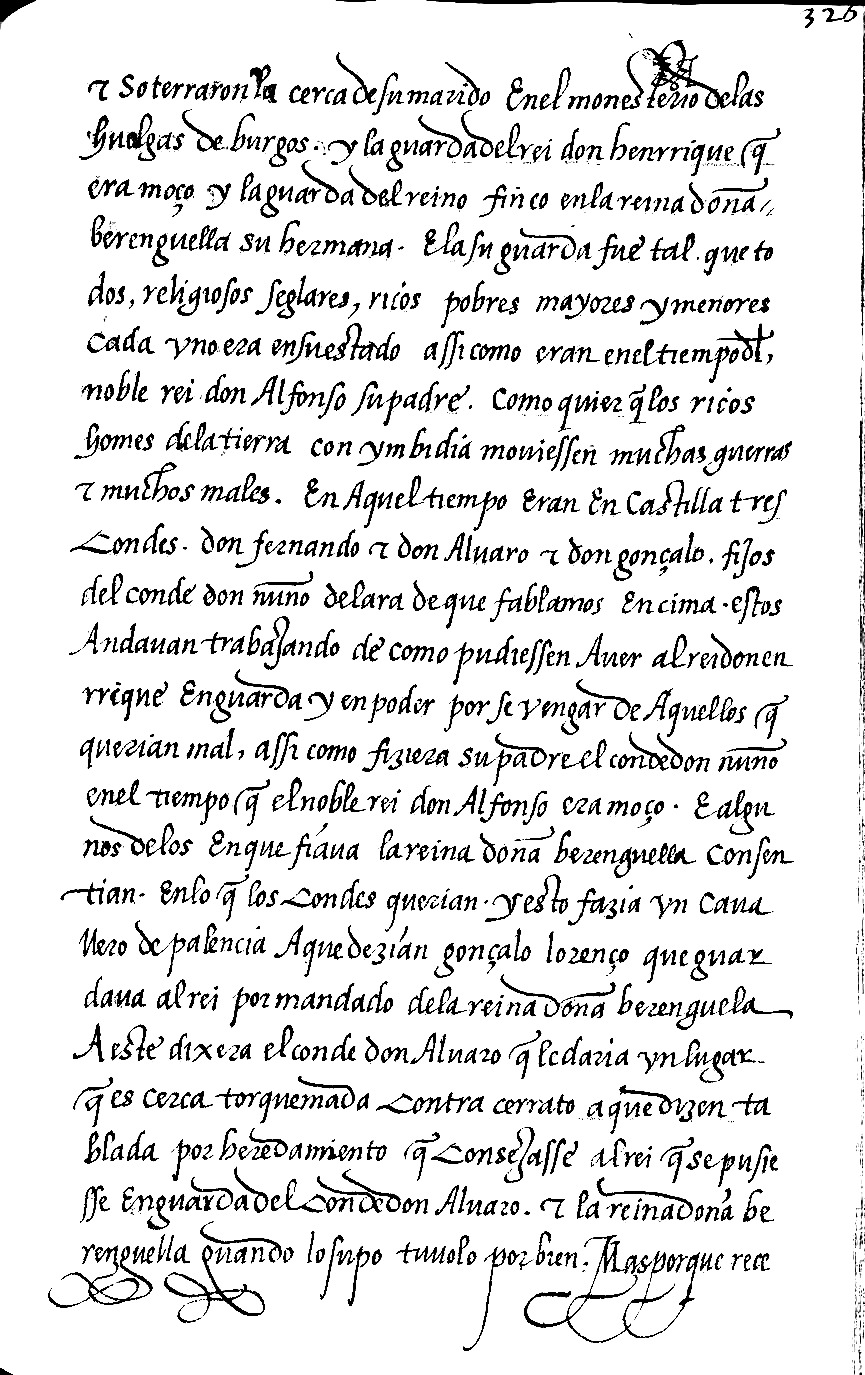 326
⁊ Soterraronla cerca de su marido En el monesterio delas
huelgas de burgos. y la guarda del rei don henrrique q̃
era moço y la guarda del reino finco en la reina doña
berenguella su hermana. E la su guarda fue tal. que to
dos, religiosos seglares, ricos pobres mayores y menores
Cada vno era en su estado assi como eran en el tiempo dl,
noble rei don Alfonso su padre. Como quier q̃ los ricos
homes de la tierra con ymbidia moviessen muchas guerras
⁊ muchos males. En Aquel tiempo Eran En Castilla tres
Condes. don fernando ⁊ don Alvaro ⁊ don gonçalo. fijos
del conde don nuño de lara de que fablamos En cima. estos
Andauan trabajando de como pudiessen Auer al rei don en
rrique En guarda y en poder por se vengar de Aquellos q̃
querian mal, assi como fiziera su padre el conde don nuño
en el tiempo q̃ el noble rei don Alfonso era moço. E algu
nos delos En que fiaua la reina doña berenguella Consen
tian. En lo q̃ los Condes querian. y esto fazia vn Caua
llero de palencia A que dezian gonçalo lorenço que guar
daua al rei por mandado de la reina doña berenguela
A este dixera el conde don Alvaro q̃ le daria vn lugar
q̃ es cerca torquemada Contra cerrato a que dizen ta
blada por heredamiento q̃ Consejasse al rei q̃ se pusie
sse En guarda del Conde don Alvaro. ⁊ la reina doña be
renguella quando lo supo tuvolo por bien. Mas porque rece